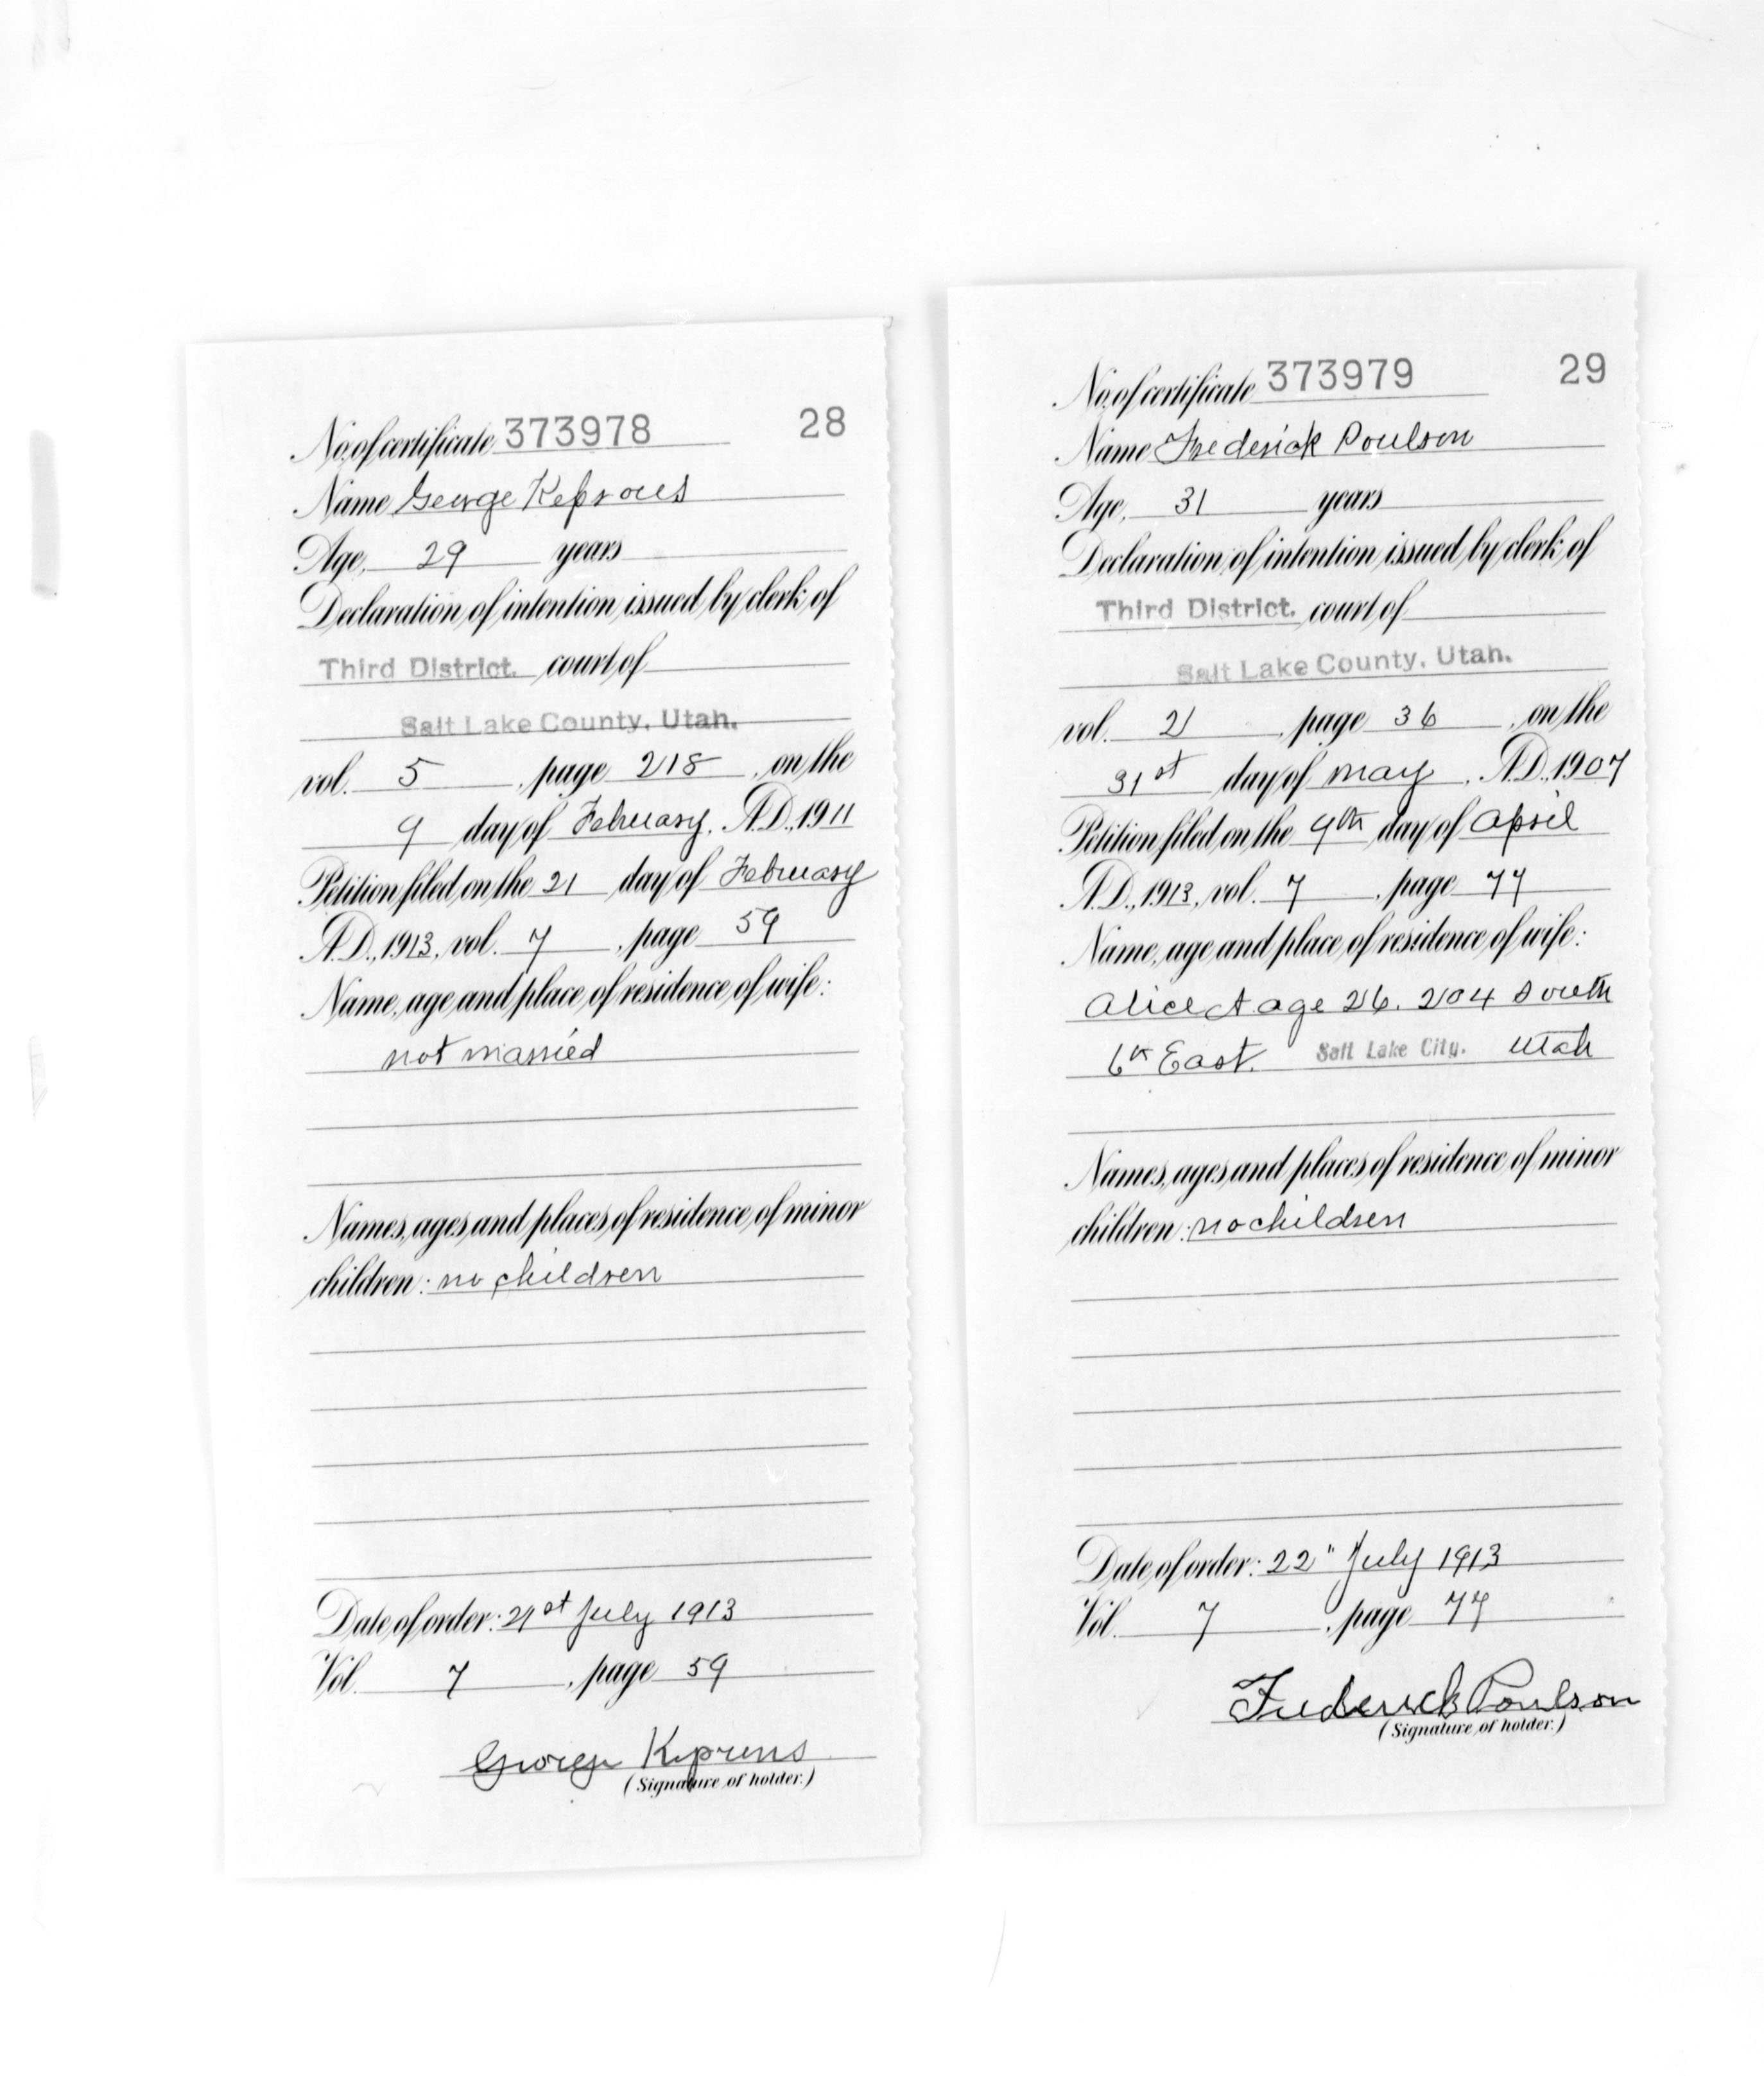 No. of certificate 373978 28
Name George Keprous
Age, 29 years
Declaration of intention issued by clerk of
Third District. court of
Salt Lake County, Utah.
vol. 5, page 218, on the
9 day of February, A.D., 1911
Petition filed on the 21 day of February
A.D., 1913, vol. 7, page 59
Name, age and place of residence of wife:
not married
Names, ages and places of residence of minor
children: no children
Date of order: 21st July 1913
Vol. 7, page 59
(Signature of holder.)
No. of certificate 373979 29
Name Frederick Poulson
Age, 31 years
Declaration of intention issued by clerk of
Third District. court of
Salt Lake County, Utah.
vol. 2, page 36, on the
31st day of May, A.D., 1907
Petition filed on the day of April
A.D., 1913, vol. 7, page 77
Name, age and place of residence of wife:
Alice A age 26. 204 South
6th East. Salt Lake City. Utah
Names, ages and places of residence of minor
children: no children
Date of order: 22" July 1913
Vol. 7, page 77
Frederick Poulson
(Signature of holder.)